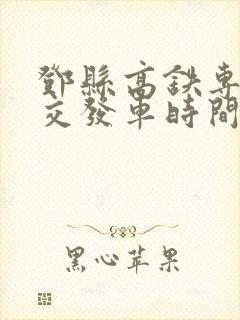 鄧縣高鉄専
交發車時間
黑心苹果